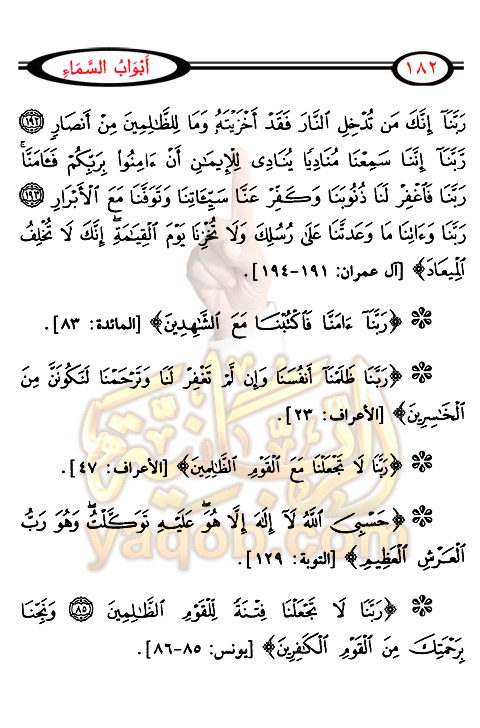 ١٨٢
أَبْوَابُ السَّمَاءِ
رَبَّنَآ إِنَّكَ مَن تُدْخِلِ ٱلنَّارَ فَقَدْ أَخْزَيْتَهُۥ وَمَا لِلظَّٰلِمِينَ مِنْ أَنصَارٍ ١٩٢
رَّبَّنَآ إِنَّنَا سَمِعْنَا مُنَادِيًا يُنَادِى لِلْإِيمَٰنِ أَنْ ءَامِنُوا۟ بِرَبِّكُمْ فَـَٔامَنَّا ۚ
رَبَّنَا فَٱغْفِرْ لَنَا ذُنُوبَنَا وَكَفِّرْ عَنَّا سَيِّـَٔاتِنَا وَتَوَفَّنَا مَعَ ٱلْأَبْرَارِ ١٩٣
رَبَّنَا وَءَاتِنَا مَا وَعَدتَّنَا عَلَىٰ رُسُلِكَ وَلَا تُخْزِنَا يَوْمَ ٱلْقِيَٰمَةِ ۗ إِنَّكَ لَا تُخْلِفُ
ٱلْمِيعَادَ﴾ [آل عمران: ١٩١-١٩٤].
❊ ﴿رَبَّنَآ ءَامَنَّا فَٱكْتُبْنَا مَعَ ٱلشَّٰهِدِينَ﴾ [المائدة: ٨٣].
❊ ﴿رَبَّنَا ظَلَمْنَآ أَنفُسَنَا وَإِن لَّمْ تَغْفِرْ لَنَا وَتَرْحَمْنَا لَنَكُونَنَّ مِنَ
ٱلْخَٰسِرِينَ﴾ [الأعراف: ٢٣].
❊ ﴿رَبَّنَا لَا تَجْعَلْنَا مَعَ ٱلْقَوْمِ ٱلظَّٰلِمِينَ﴾ [الأعراف: ٤٧].
❊ ﴿حَسْبِىَ ٱللَّهُ لَآ إِلَٰهَ إِلَّا هُوَ ۖ عَلَيْهِ تَوَكَّلْتُ ۖ وَهُوَ رَبُّ
ٱلْعَرْشِ ٱلْعَظِيمِ﴾ [التوبة: ١٢٩].
❊ ﴿رَبَّنَا لَا تَجْعَلْنَا فِتْنَةً لِّلْقَوْمِ ٱلظَّٰلِمِينَ ٨٥ وَنَجِّنَا
بِرَحْمَتِكَ مِنَ ٱلْقَوْمِ ٱلْكَٰفِرِينَ﴾ [يونس: ٨٥-٨٦].
yaqob.com